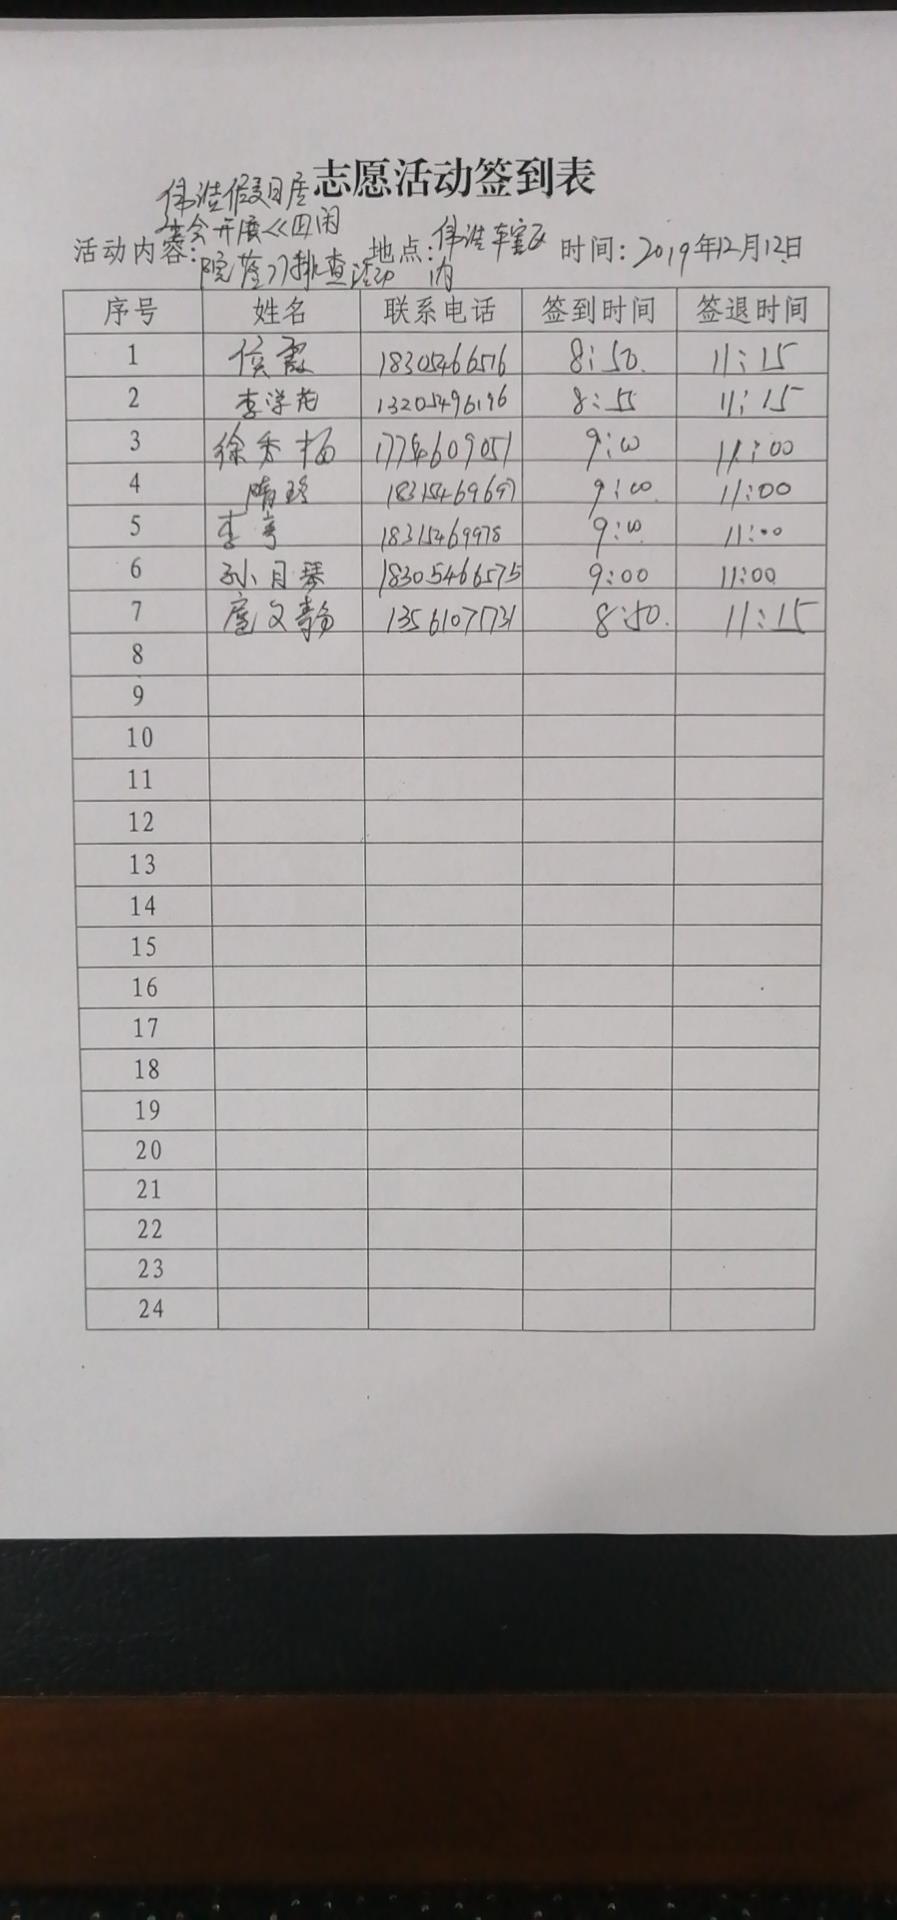 志愿活动签到表
活动内容：伟浩假日居
委会开展《四闭
院 排查活动
地点：伟浩辖区
内
时间：2019年12月12日
序号 姓名 联系电话 签到时间 签退时间
1 侯霞 18305466576 8:50 11:15
2 李学 13205496196 8:55 11:15
3 徐秀梅 17754609051 9:00 11:00
4 隋玲 18315469697 9:00 11:00
5 李 18315469978 9:00 11:00
6 孙月琴 18305466575 9:00 11:00
7 文静 13561071731 8:50 11:15
8
9
10
11
12
13
14
15
16
17
18
19
20
21
22
23
24